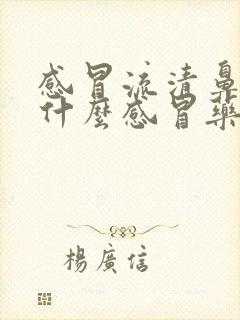 感冒流清鼻
什麼感冒藥
楊廣信